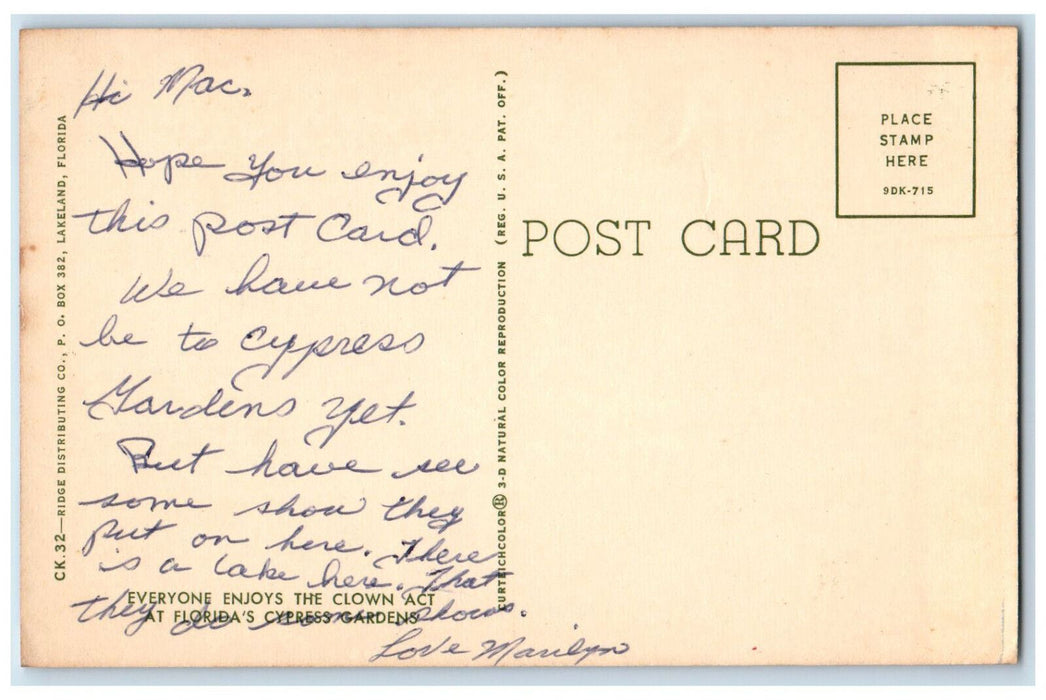 Hi Mac.
Hope you enjoy
this post Card.
We have not
be to Cypress
Gardens yet.
But have see
some show they
put on here. There
is a lake here. That
they do some shows.
Love Marilyn
EVERYONE ENJOYS THE CLOWN ACT
AT FLORIDA'S CYPRESS GARDENS
CK.32—RIDGE DISTRIBUTING CO., P. O. BOX 382, LAKELAND, FLORIDA
CURTEICHCOLOR® 3-D NATURAL COLOR REPRODUCTION (REG. U. S. A. PAT. OFF.)
POST CARD
PLACE
STAMP
HERE
9DK-715